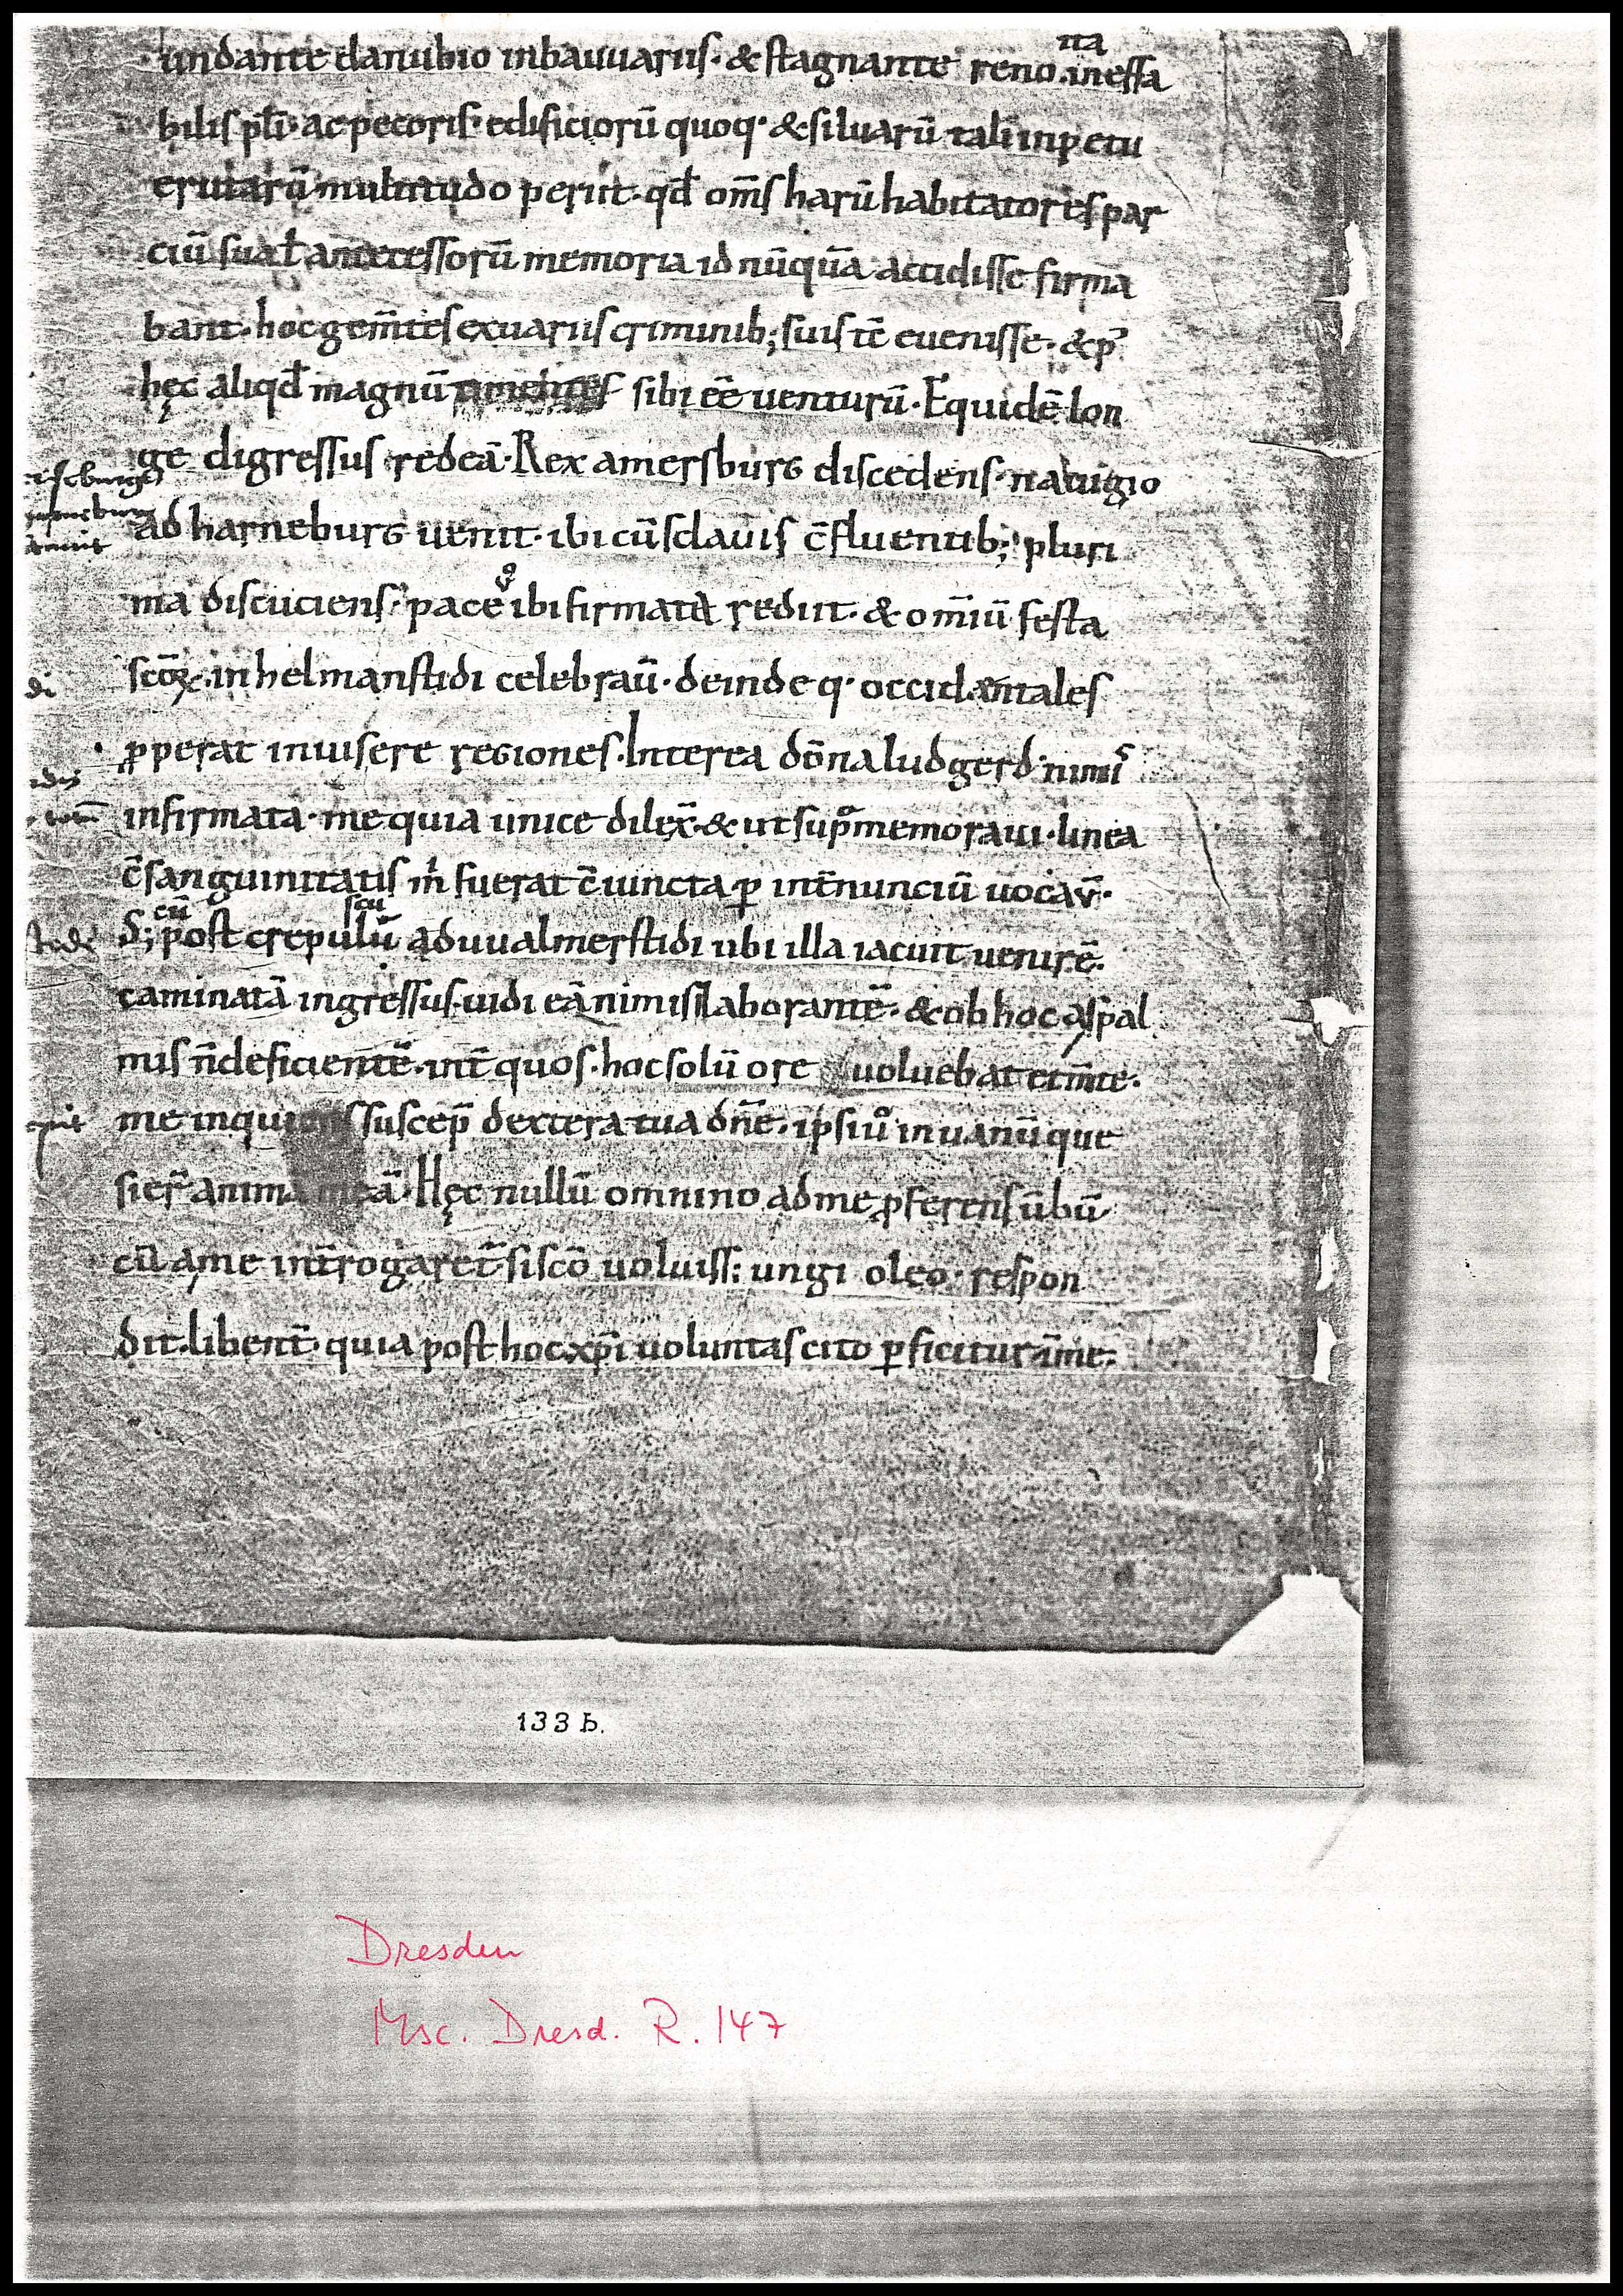 ita
undante danubio inbauuariis· & stagnante reno· inessa
bilis pl̄i· ac pecoris· edificiorū quoq· & siluarū tali inpetu
erutarū multitudo periit· qđ om̄s harū habitatores par
ciū suaꝶ antecessorū memoria id nūquā accidisse firma
bant· hoc gem̄tes exuariis criminib; suis tē euenisse· & p̄
hęc aliqđ magnū timentes sibi eē uenturū· Equidē lon
ge digressus redeā· Rex amersburg discedens· nauigio
ad harneburg uenit· ibi cū sclauis c̄fluentib; pluri
ma discuciens· pace ibi firmata rediit· & omiū festa
scōꝝ· in helmanstidi celebraū· deinde q· occidentales
ꝓperat inuisere regiones· Interea dōna ludgerd· nimī
infirmata· me quia unice dilex̄· & ut sup̄ memoraui· linea
c̄sanguinitatis m̄ fuerat c̄uincta ꝑ int̄nunciū uocav̄·
cū scū
D; post crepulū aduualmerstidi ubi illa iacuit uenirē·
caminatā ingressus· uidi eā nimis laborantē· & ob hoc a spal
mis n̄ deficientē· int̄ quos· hoc solū ore uoluebat et m̄te·
me inquiens suscep̄ dextera tua dn̄e· ipsiꝰ in uanū que
sier̄ anima meā· Hęc nullū omnino ad me ꝓferens ūbū
cū a me int̄rogaret̄ si scō uoluiss; ungi oleo· respon
dit· libent̄· quia post hoc xp̄i uoluntas cito ꝑficitur ā me·
di
stidi
133 b.
Dresden
Msc. Dresd. R. 147